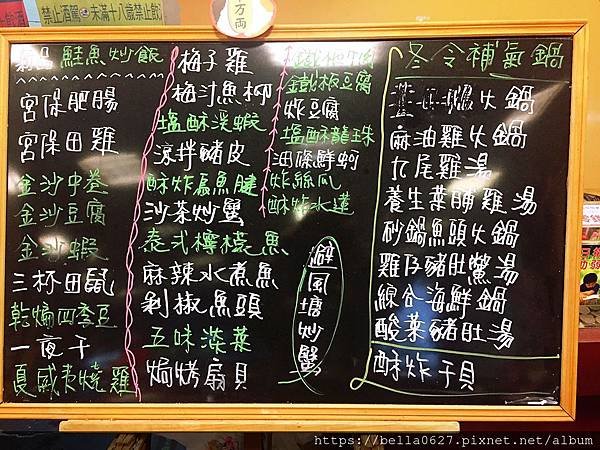 禁止酒駕 未滿十八歲禁止飲酒
千万両
鮭魚炒飯
宮保肥腸
宮保田雞
金沙中卷
金沙豆腐
金沙蝦
三杯田鼠
乾煸四季豆
一夜干
夏威夷燒雞
梅子雞
梅汁魚柳
塩酥溪蝦
涼拌豬皮
酥炸扁魚腱
沙茶炒蟹
泰式檸檬魚
麻辣水煮魚
剁椒魚頭
五味蒸菜
焗烤扇貝
鐵板牛肉
鐵板豆腐
炸豆腐
塩酥龍珠
油條鮮蚵
炸絲瓜
酥炸水蓮
避風塘炒蟹
冬令補氣鍋
火鍋
麻油雞火鍋
九尾雞湯
養生菜脯雞湯
砂鍋魚頭火鍋
雞仔豬肚鱉湯
綜合海鮮鍋
酸菜豬肚湯
酥炸干貝
https://bella0627.pixnet.net/album